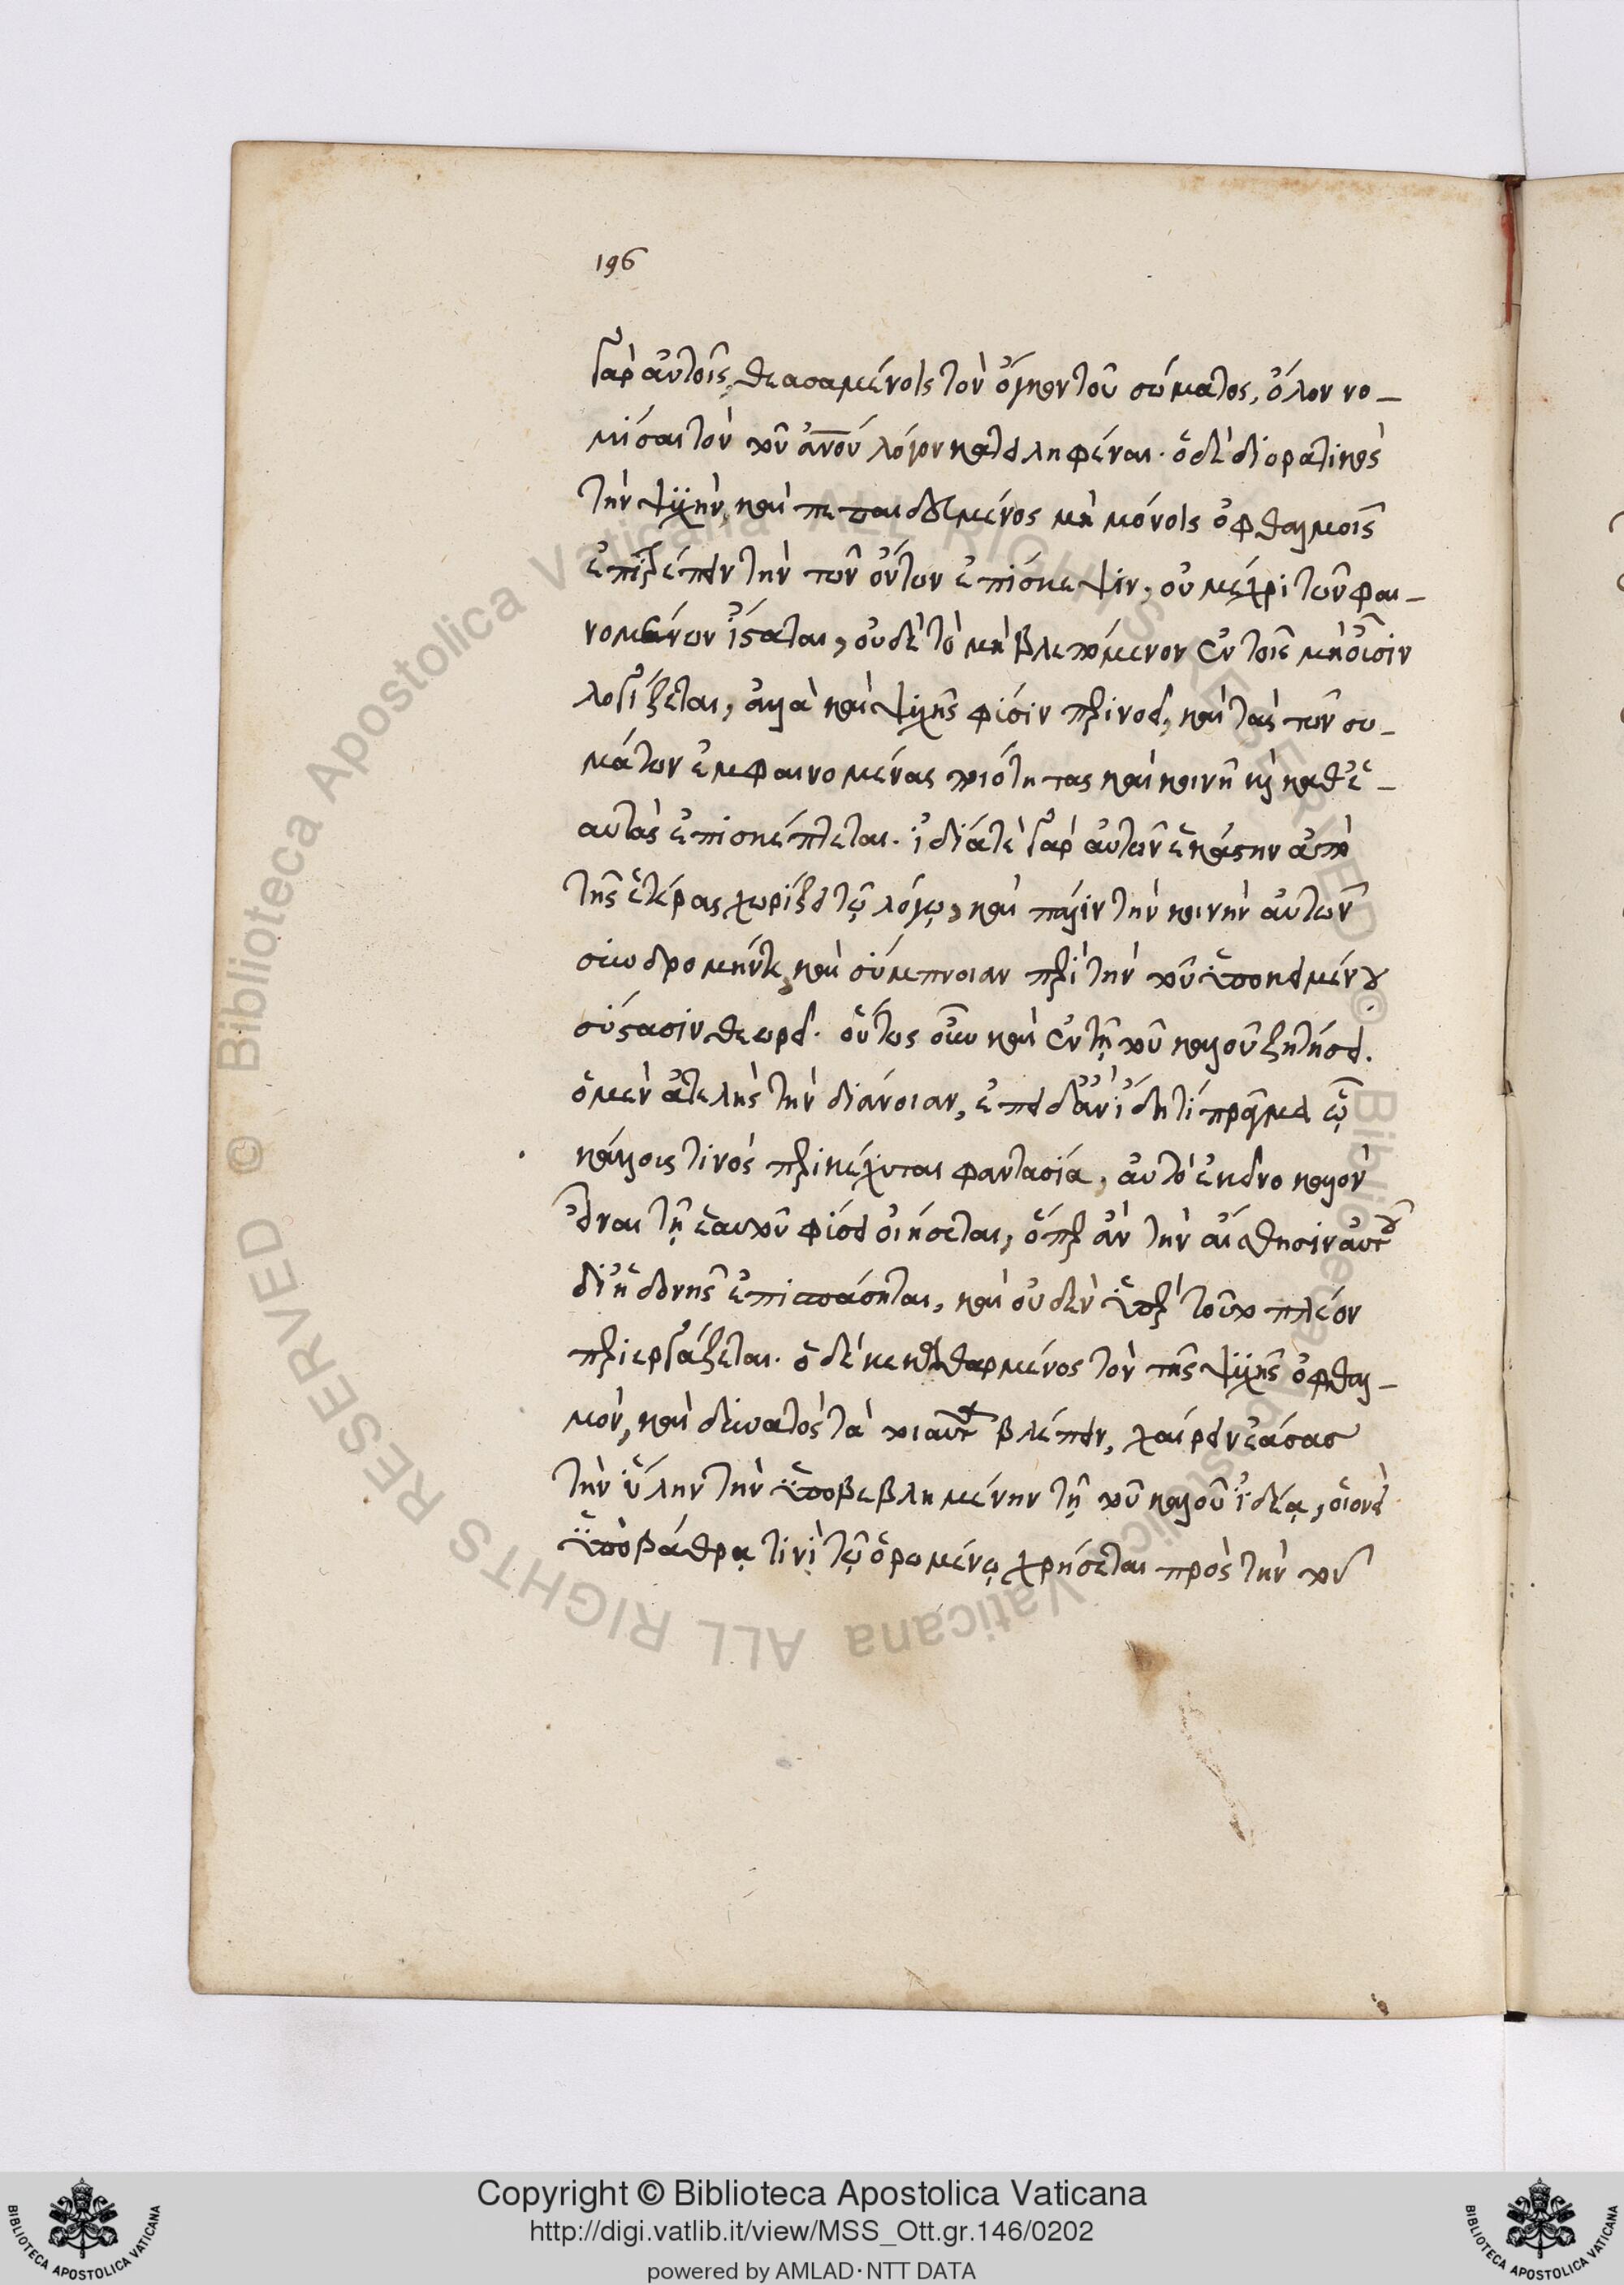 196
γὰρ αὐτοῖς, θεασαμένοις τὸν ὄγκον τοῦ σώματος, ὅλον νο-
μίσαι τὸν τοῦ ἀνου λόγον κατειληφέναι· ὁ δὲ διορατικὸς
τὴν ψυχὴν, καὶ πεπαιδευμένος μὴ μόνοις ὀφθαλμοῖς
ἐπιτρέπειν τὴν τῶν ὄντων ἐπίσκεψιν, οὐ μέχρι τῶν φαι-
νομένων ἵσταται, οὐδὲ τὸ μὴ βλεπόμενον ἐν τοῖς μὴ οὖσιν
λογίζεται, ἀλλὰ καὶ ψυχῆς φύσιν περινοεῖ, καὶ τὰς τῶν σω-
μάτων ἐμφαινομένας ποιότητας καὶ κοινῇ καὶ καθ' ἑ-
αυτὰς ἐπισκέπτεται. ἰδίᾳ τὲ γὰρ αὐτῶν ἑκάστην ἀπὸ
τῆς ἑτέρας χωρίζει τῷ λόγῳ, καὶ πάλιν τὴν κοινὴν αὐτῶν
συνδρομήν τε, καὶ σύμπνοιαν περὶ τὴν τοῦ ὑποκειμένου
σύστασιν θεωρεῖ. οὕτως οὖν καὶ ἐν τῇ τοῦ καλοῦ ζητήσει.
ὁ μὲν ἀτελὴς τὴν διάνοιαν, ἐπειδὰν ἴδῃ τί πρᾶγμα ᾧ
κάλλους τινὸς περικέχυται φαντασία, αὐτὸ ἐκεῖνο καλὸν
εἶναι τῇ ἑαυτοῦ φύσει οἰήσεται, ὅπερ ἂν τὴν αἴσθησιν αὐτοῦ
δι' ἡδονῆς ἐπισπάσηται, καὶ οὐδὲν ὑπὲρ τοῦτο πλέον
περιεργάζεται. ὁ δὲ κεκαθαρμένος τὸν τῆς ψυχῆς ὀφθαλ-
μὸν, καὶ δυνατὸς τὰ τοιαῦτα βλέπειν, χαίρειν ἐάσας
τὴν ὕλην τὴν ὑποβεβλημένην τῇ τοῦ καλοῦ ἰδέᾳ, οἱονεὶ
ὑποβάθρᾳ τινὶ τῷ ὁρωμένῳ χρήσεται πρὸς τὴν τοῦ
Copyright © Biblioteca Apostolica Vaticana
http://digi.vatlib.it/view/MSS_Ott.gr.146/0202
powered by AMLAD·NTT DATA